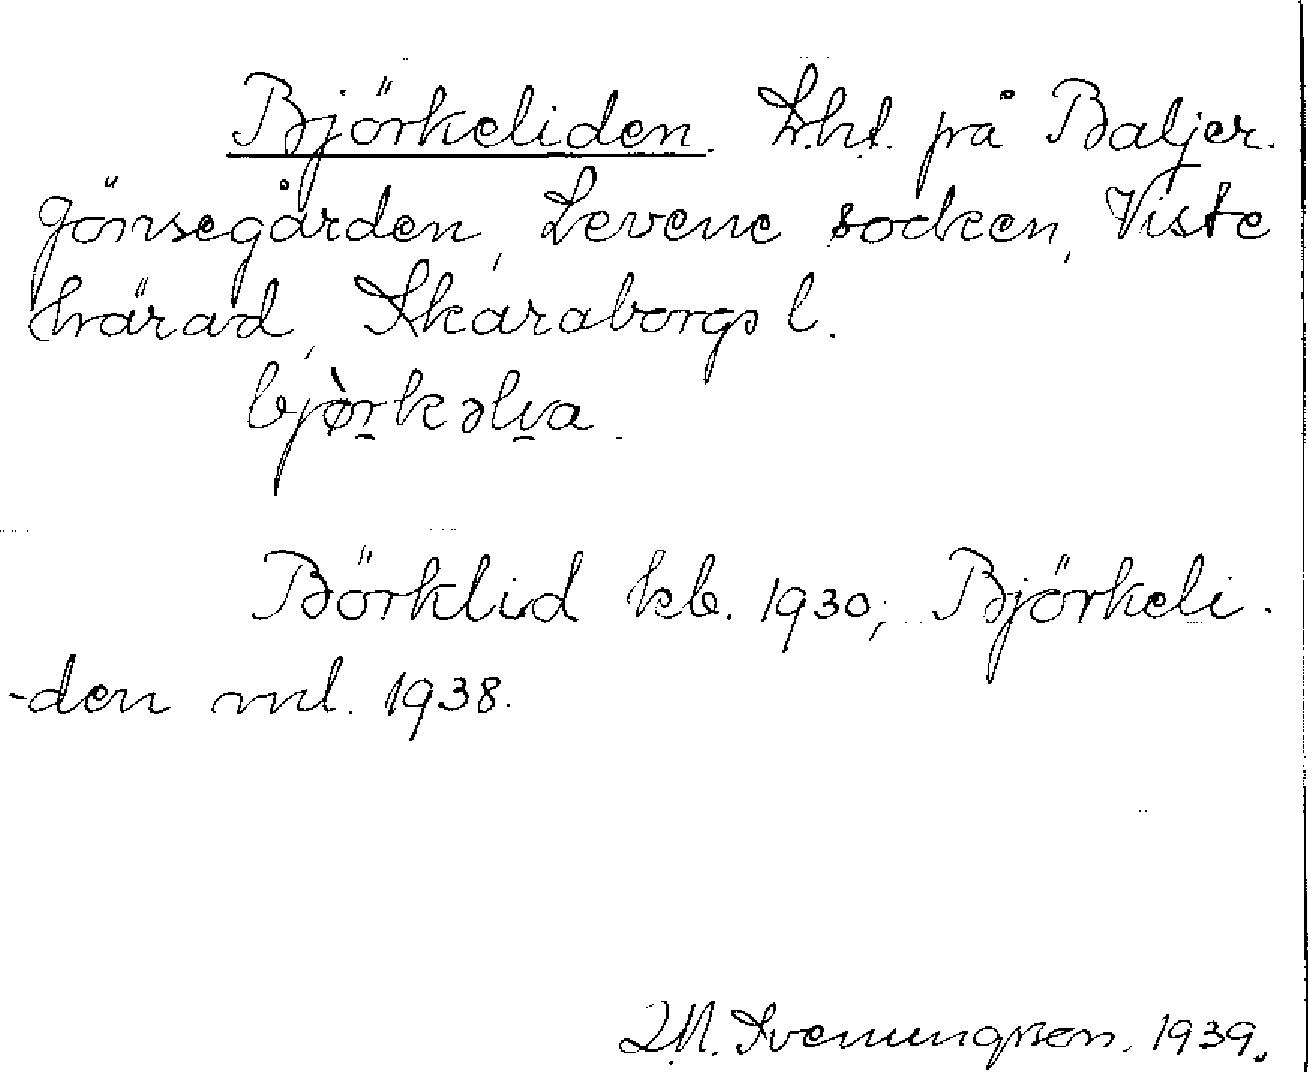 Björkeliden. Lht. på Baljer.
gönsegården, Levene socken, Viste
härad, Skaraborgs l.
bjø̀rkəlia.
Börklid kb. 1930; Björkeli-
-den ml. 1938.
Svenungsson. 1939.